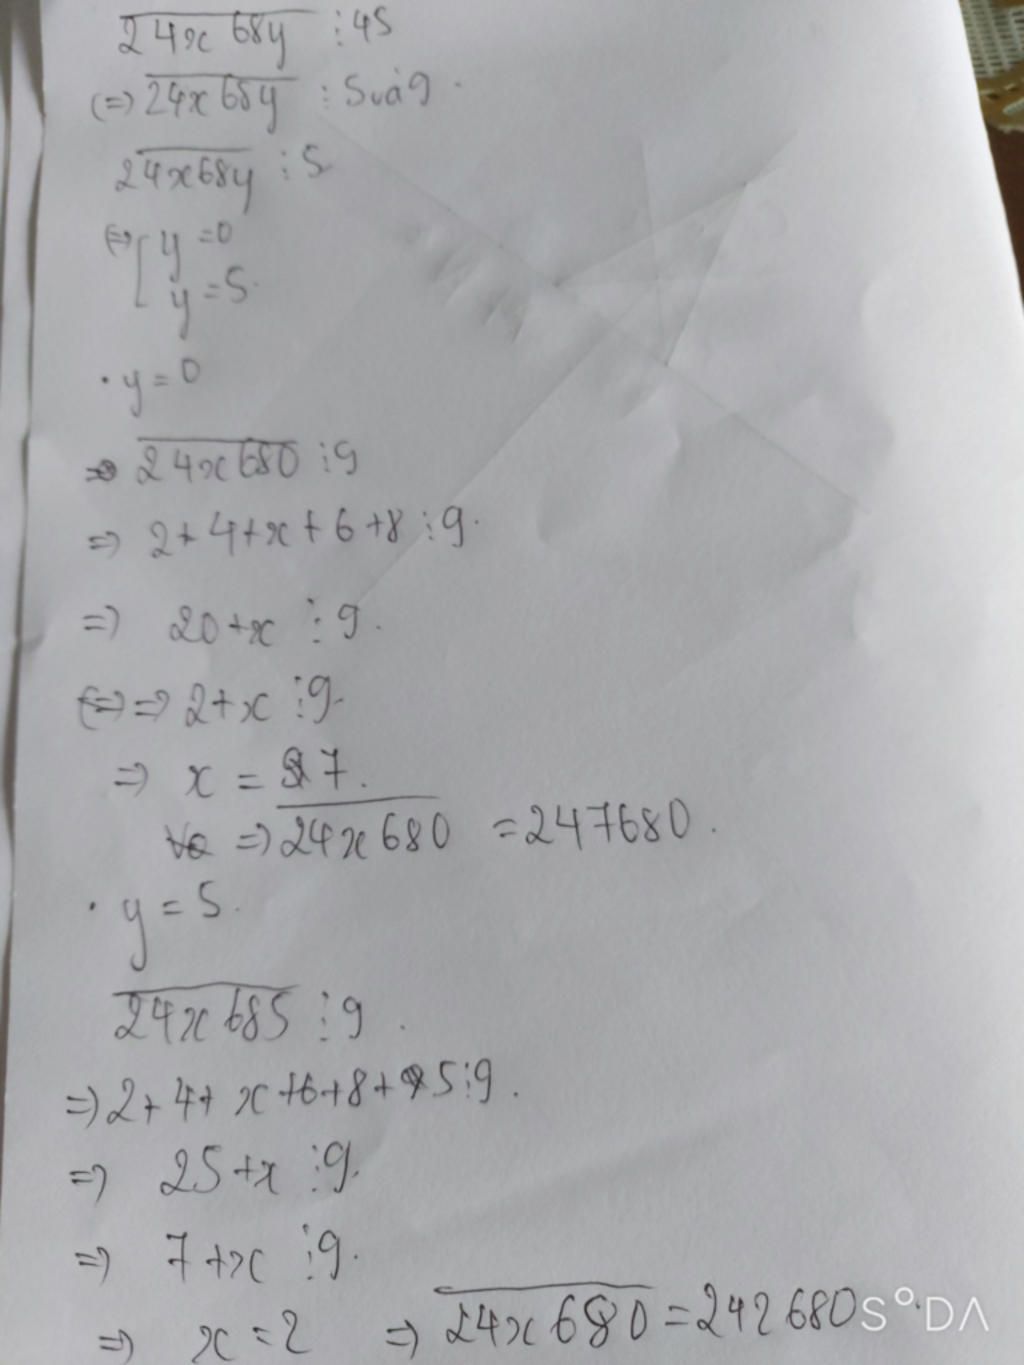 24x68y ⋮ 45
(=) 24x68y ⋮ 5 và 9.
24x68y ⋮ 5
(=) [ y = 0
y = 5.
• y = 0
=> 24x680 ⋮ 9
=> 2 + 4 + x + 6 + 8 ⋮ 9.
=> 20 + x ⋮ 9.
=> 2 + x ⋮ 9.
=> x = 7.
=> 24x680 = 247680.
• y = 5.
24x685 ⋮ 9.
=> 2 + 4 + x + 6 + 8 + 5 ⋮ 9.
=> 25 + x ⋮ 9.
=> 7 + x ⋮ 9.
=> x = 2 => 24x680 = 242680.
S°DA